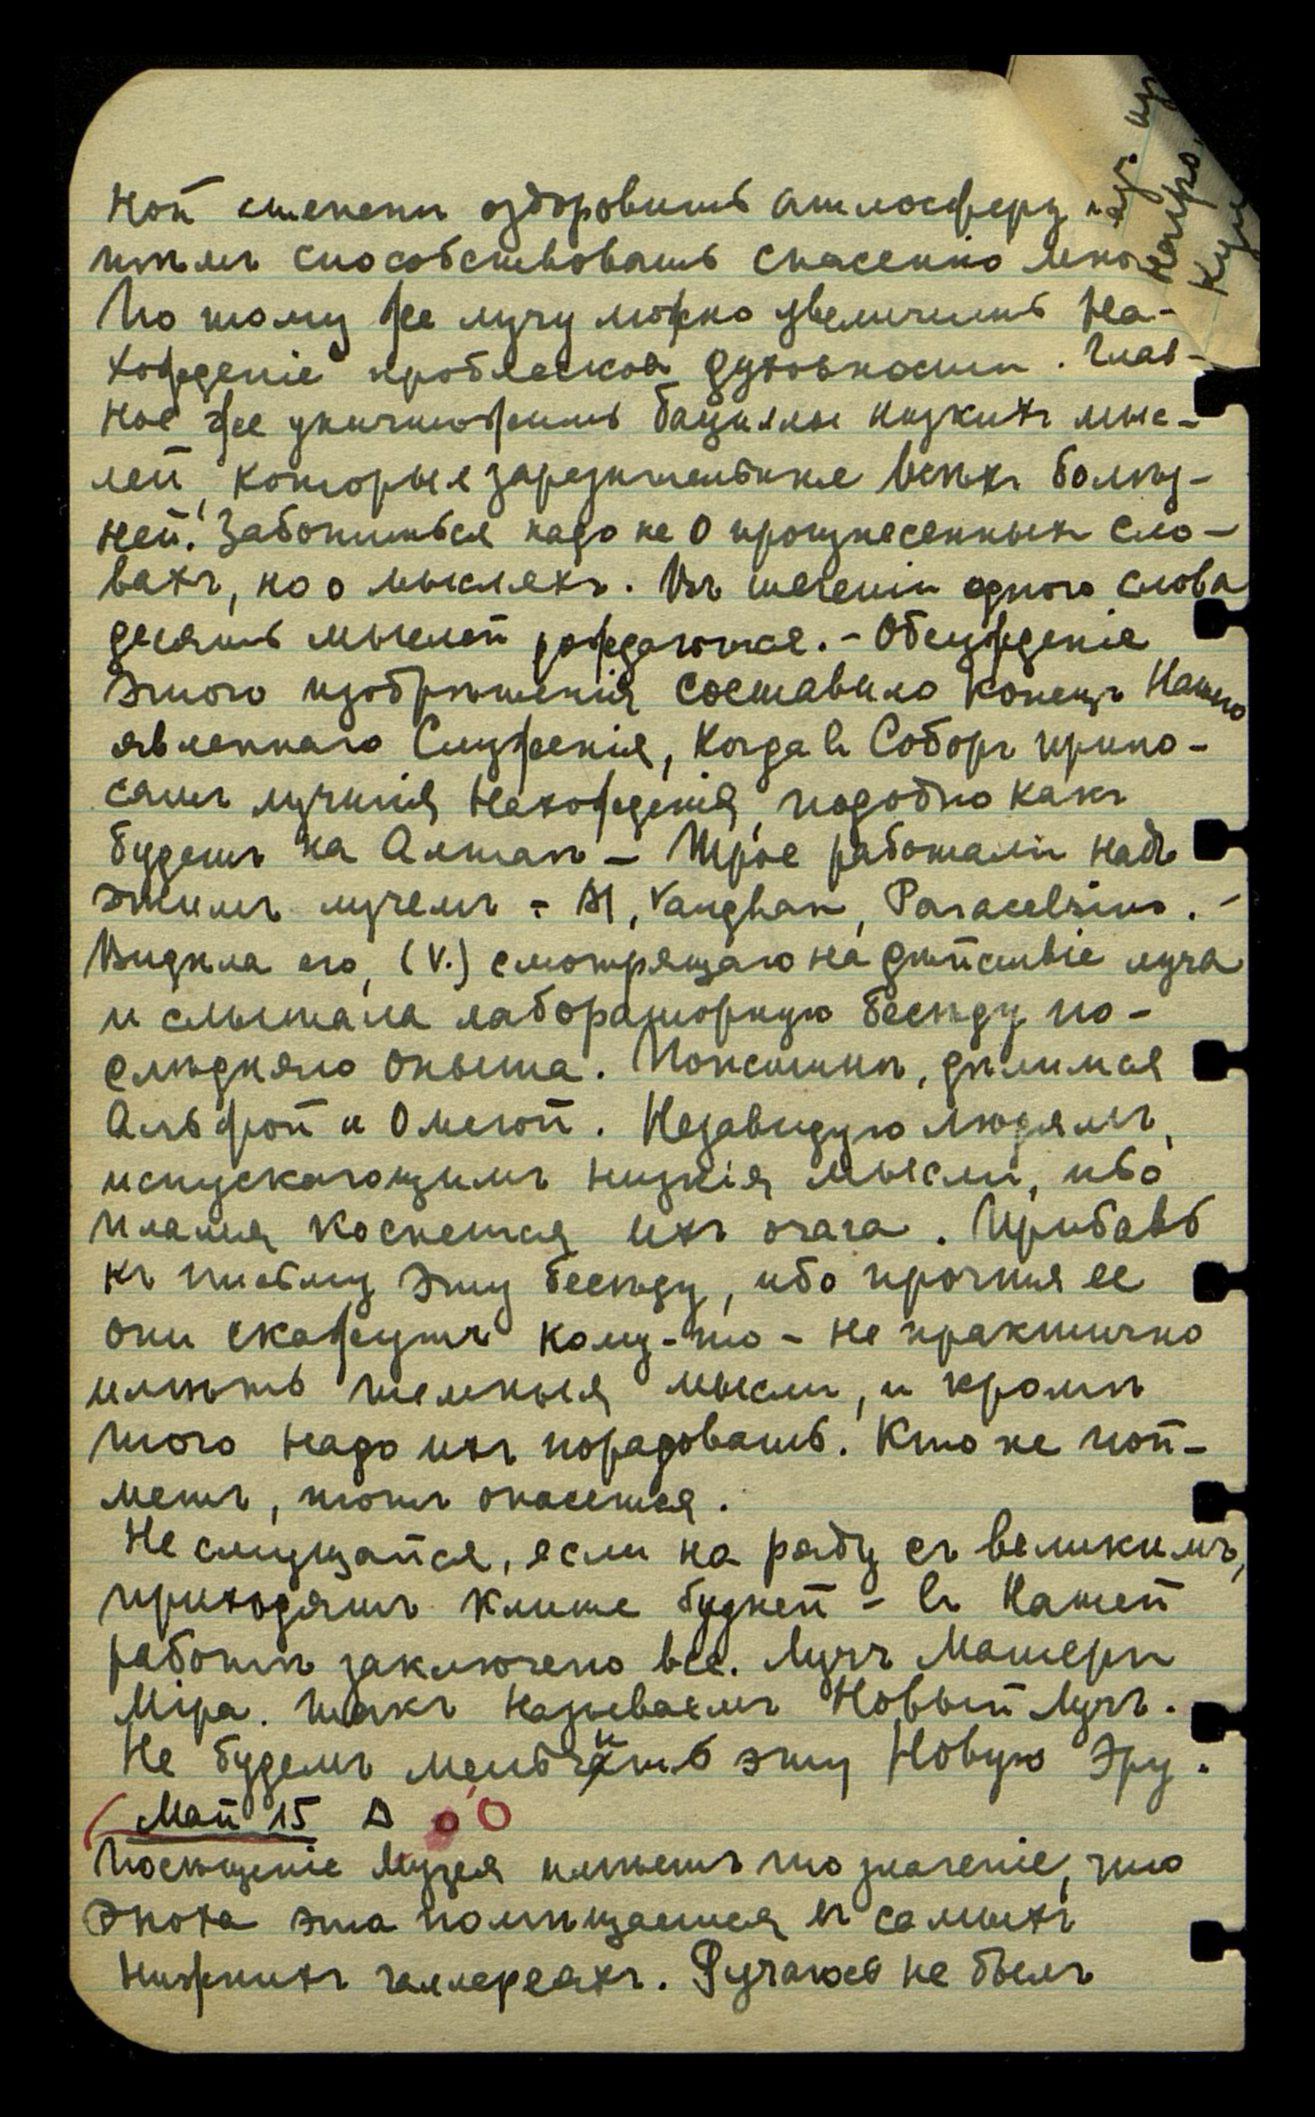 ной степени оздоровить атмосферу и
тѣмъ способствовать спасенію мно
По тому же лучу можно увеличить На-
хожденіе проблесков духовности. Глав-
ное же уничтожить бациллы низкихъ мыс-
лей, которыя заразительнѣе всѣхъ болѣз-
ней. Заботиться надо не о произнесенныхъ сло-
вахъ, но о мысляхъ. Въ теченіи одного слова
десять мыслей рождаются. – Обсужденіе
этого изобрѣтенія составило конецъ Нашего
явленнаго Служенія, Когда въ Соборъ прино-
сятъ лучшія Нахожденія, подобно какъ
будетъ на Алтаѣ – Трое работали надъ
этимъ лучемъ – М, Vaughan, Paracelsius. –
Видѣла его, (V.) смотрящаго на дѣйствіе луча
и слышала лабораторную бесѣду по-
слѣдняго опыта. Поистинѣ, дѣлимся
Альфой и Омегой. Независтную людямъ,
испускающимъ низкія мысли, ибо
пламя коснется ихъ очага. Прибавь
къ письму эту бесѣду, ибо прочтя ее
они скажутъ кому-то – не практично
имѣть темныя мысли, и кромѣ
того надо ихъ порадовать. Кто не пой-
метъ, тотъ опасется.
Не смущайся, если на ряду съ великимъ,
приходятъ клише будней – въ Нашей
работѣ заключено все. Лучъ Матери
Міра. Такъ называемъ Новый Лучъ.
Не будемъ мельчить эту Новую Эру.
Май 15 Δ
Посѣщеніе Музея имѣетъ то значеніе, что
Эпоха эта помѣщается въ самыхъ
нижнихъ галлереяхъ. Ручаюсь не былъ